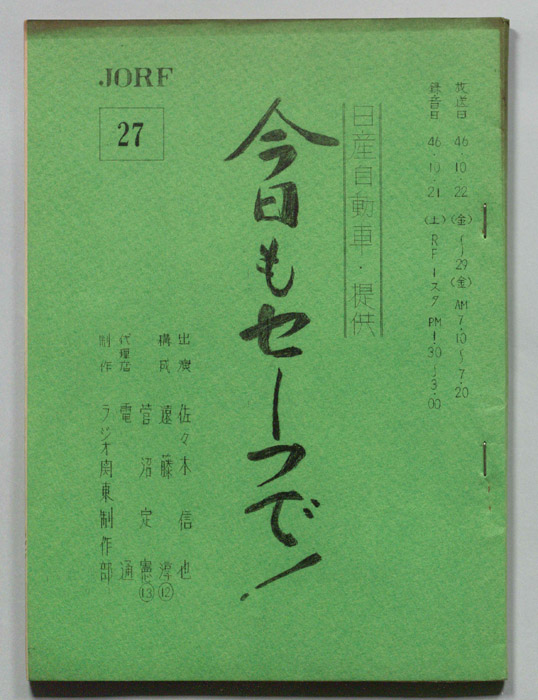 放送日 46.10.22(金)〜29(金)AM7.10〜7.20
録音日 46.10.21(土)RF1スタ PM1.30〜3.00
日産自動車・提供
今日もセーフで!
JORF
27
出演 佐々木信也
構成 遠藤淳⑫
菅沼定憲⑬
代理店 電通
制作 ラジオ関東制作部